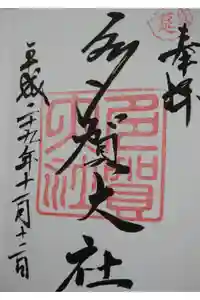 奉拝
多賀大社
平成二十九年十一月十二日